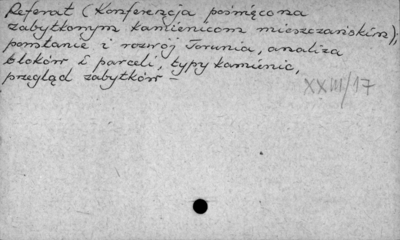 Referat (Konferencja poświęcona
zabytkowym kamienicom mieszczańskim),
powstanie i rozwój Torunia, analiza
bloków i parceli, typy kamienic,
przegląd zabytków –
XXIII/17